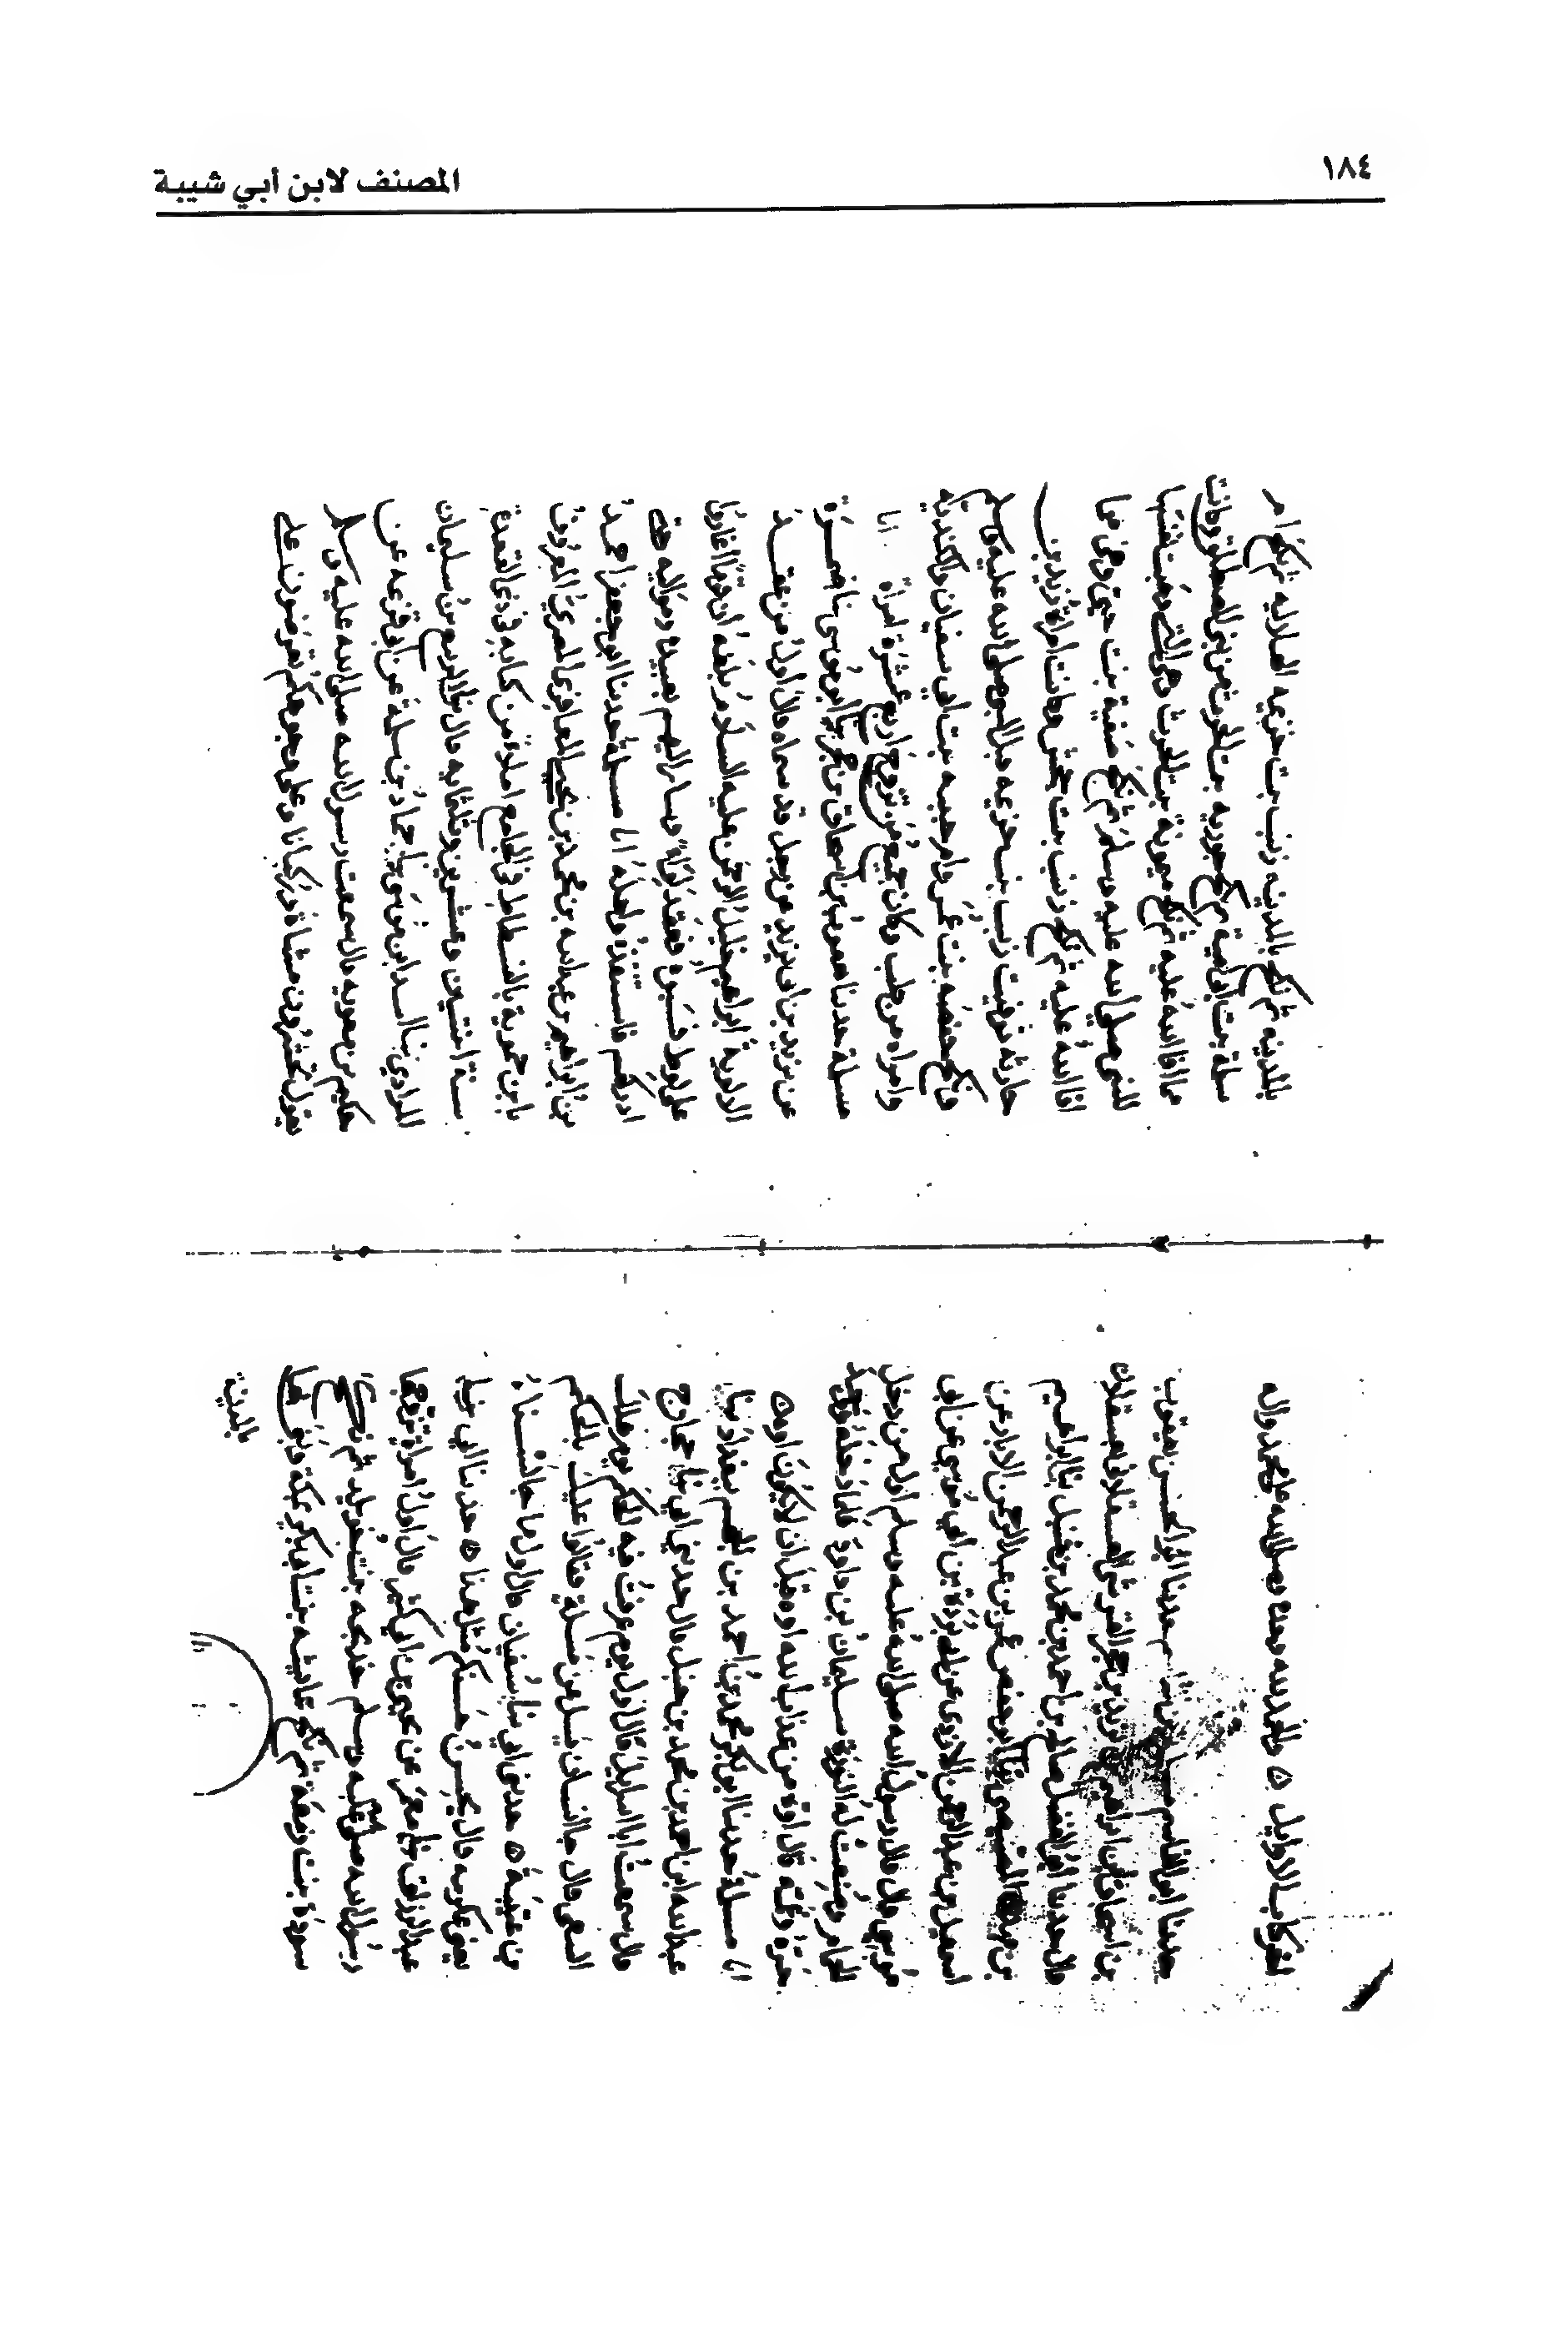 ١٨٤
المصنف لابن أبي شيبة
اخر كتاب الاوايل ه والحمد لله وحده وصلى الله على محمد واله
حدثنا ابو القاسم مسلمة بن القاسم حدثنا ابو الحسن يعقوب
بن اسحاق بن ابراهيم بن يزيد بن حجر القرشي العسقلاني بعسقلان
قال حدثنا ابو الفضل صالح بن احمد بن محمد بن حنبل ثنا ابراهيم
بن مهدي المصيصي ثنا ابو حفص عمر بن عبد الرحمن الابار عن
اسمعيل بن عبد الرحمن الازدي عن ابي بردة بن ابي موسى عن ابي
موسى قال قال رسول الله صلى الله عليه وسلم اول من دخل
الحمام وصنعت له النورة سليمان بن داود فلما دخله ووجد
حره وغمه قال اوه من عذاب الله اوه قبل ان لا يكون اوه ه
انا مسلمة حدثنا ابو بكر محمد بن احمد بن الجهم ببغداد ثنا
عبد الله ابن احمد بن محمد بن حنبل قال حدثني ابي ثنا حجاج
قال سمعت ابا اسرايل قال اول يوم عرفت فيه الحكم يوم هلك
الشعبي قال جا انسان يسل عن مسلة فقالوا عليك بالحكم
بن عتيبة ه حدثني ابي ثنا سفيان قال اول ما جالسنا
يعني عكرمه قال يحسن حسنكم مثل هذا ه حدثنا ابي ثنا
عبد الرزاق ثنا معمر عن يحيى بن ابي كثير قال اول امراة تزوجها
رسول الله صلى الله عليه وسلم خديجه بنت خويلد ثم نكح
سودة بنت زمعة ثم نكح عايشه بنت ابي بكر بمكة وبنى بها
بالمدينة
بالمدينه ثم نكح بالمدينه زينب بنت خزيمه الهلاليه ثم نكح ام
سلمة بنت ابي امية ثم نكح جويريه بنت الحرث من بني المصطلق وكانت
مما افا الله عليه ثم نكح ميمونة بنت الحرث وهي التي وهبت نفسها
للنبي صلى الله عليه وسلم ثم نكح صفية بنت حيي وهي مما
افا الله عليه ثم نكح زينب بنت جحش وكانت امراة زيد بن
حارثه توفيت زينب بنت خزيمه قبل النبي صلى الله عليه وسلم
ونكح حفصه بنت عمر وام حبيبه بنت ابي سفيان والكنديه
وامراه من كلب وكان جميع من تزوج اربع عشرة امراة انا
مسلمة حدثنا يعقوب بن اسحاق بن حجر ثنا ابو موسى نا ضمرة
عن يزيد بن ابي يزيد عن رجل قد سماه قال اول من عقد
الالوية ابراهيم خليل الرحمن عليه السلام بلغه ان قوما اغاروا
على لوط فسبوه فعقد لواء وسار اليهم بعبيده ومواليه حتى
ادركهم فاستنقذه واهله انا مسلمة حدثنا ابو جعفر احمد
بن ابراهيم بن عبد الله بن محمد بن يحيى المعافري المصري المعروف
بابن حموية بالفسطاط في الجامع املاء من كتابه في ذي القعدة
سنة اثنتين وعشرين وثلثمايه قال ثنا الربيع بن سليمان
المرادي ثنا اسد ابن موسى ثنا حماد بن سلمة عن ابي قزعه عن
حكيم بن معويه قال سمعت رسول الله صلى الله عليه وسلم
يقول تحشرون مشاة وركبانا وعلى وجوهكم تعرضون على